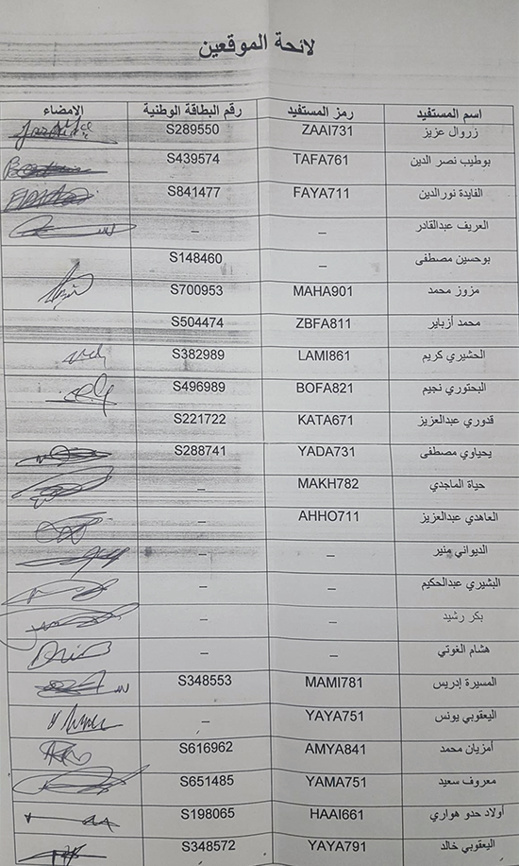 لائحة الموقعين
اسم المستفيد رمز المستفيد رقم البطاقة الوطنية الإمضاء
زروال عزيز ZAAI731 S289550
بوطيب نصر الدين TAFA761 S439574
الفايدة نورالدين FAYA711 S841477
العريف عبدالقادر – –
بوحسين مصطفى – S148460
مزوز محمد MAHA901 S700953
محمد أزباير ZBFA811 S504474
الحشيري كريم LAMI861 S382989
البحتوري نجيم BOFA821 S496989
قدوري عبدالعزيز KATA671 S221722
يحياوي مصطفى YADA731 S288741
حياة الماجدي MAKH782 –
العاهدي عبدالعزيز AHHO711 –
الديواني منير – –
البشيري عبدالحكيم – –
بكر رشيد – –
هشام الغوتي – –
المسيرة إدريس MAMI781 S348553
اليعقوبي يونس YAYA751 –
أمزيان محمد AMYA841 S616962
معروف سعيد YAMA751 S651485
أولاد حدو هواري HAAI661 S198065
اليعقوبي خالد YAYA791 S348572